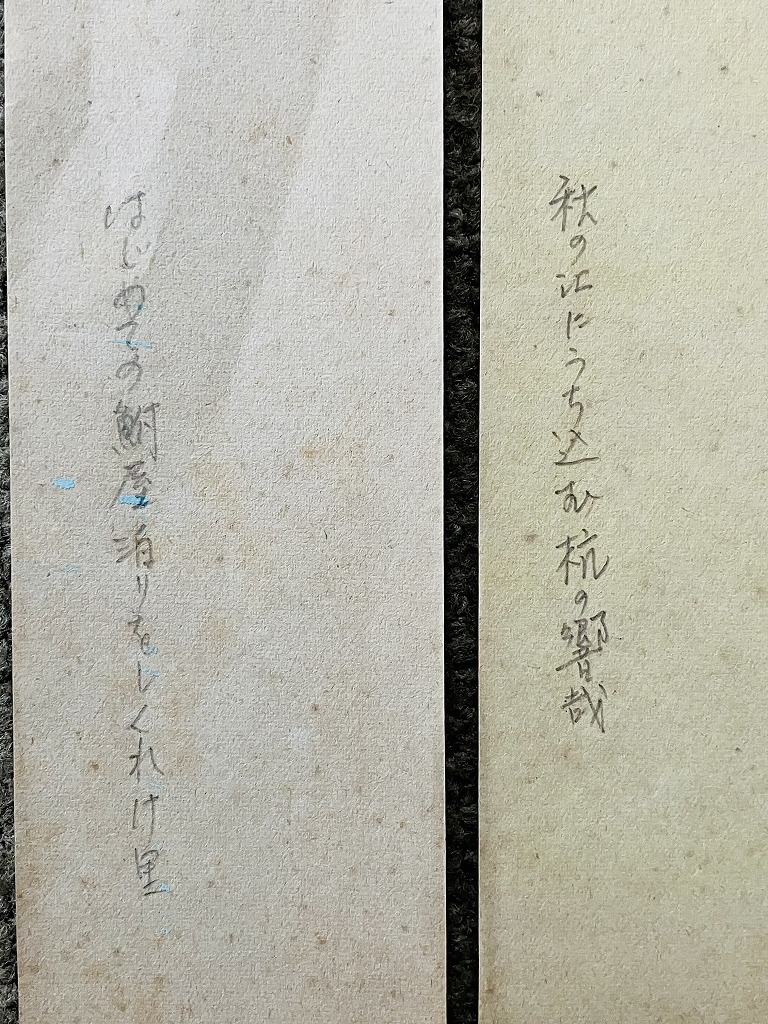 秋の江にうち込む杭の響哉
はじめての鮒屋泊りをしぐれけ里